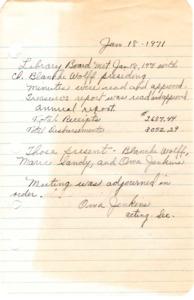 Jan. 18 - 1971
Library Board met Jan. 18, 1971 with
Ch. Blanche Wolff presiding
Minutes were read and approved.
Treasurer's report was read & approved.
Annual report
Total Receipts
Total Disbursements
Those present - Blanche Wolff,
Marie Gandy, and Oma Jenkins
Meeting was adjourned in
order.
Oma Jenkins
acting Sec.